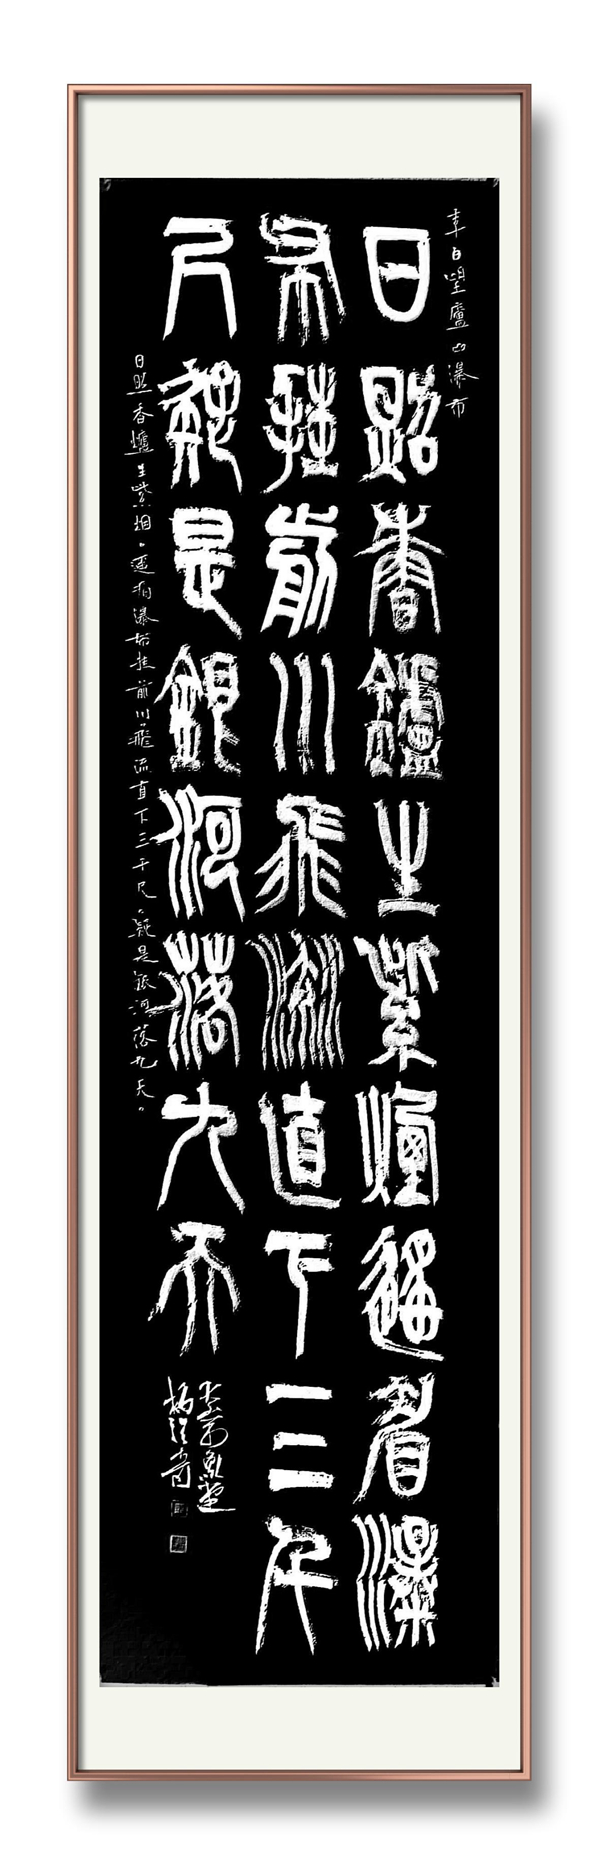 李白望廬山瀑布
日照香爐生紫煙遙看瀑
布挂前川飛流直下三千
尺疑是銀河落九天
日照香爐生紫烟。遥看瀑布挂前川。飛流直下三千尺。疑是銀河落九天。